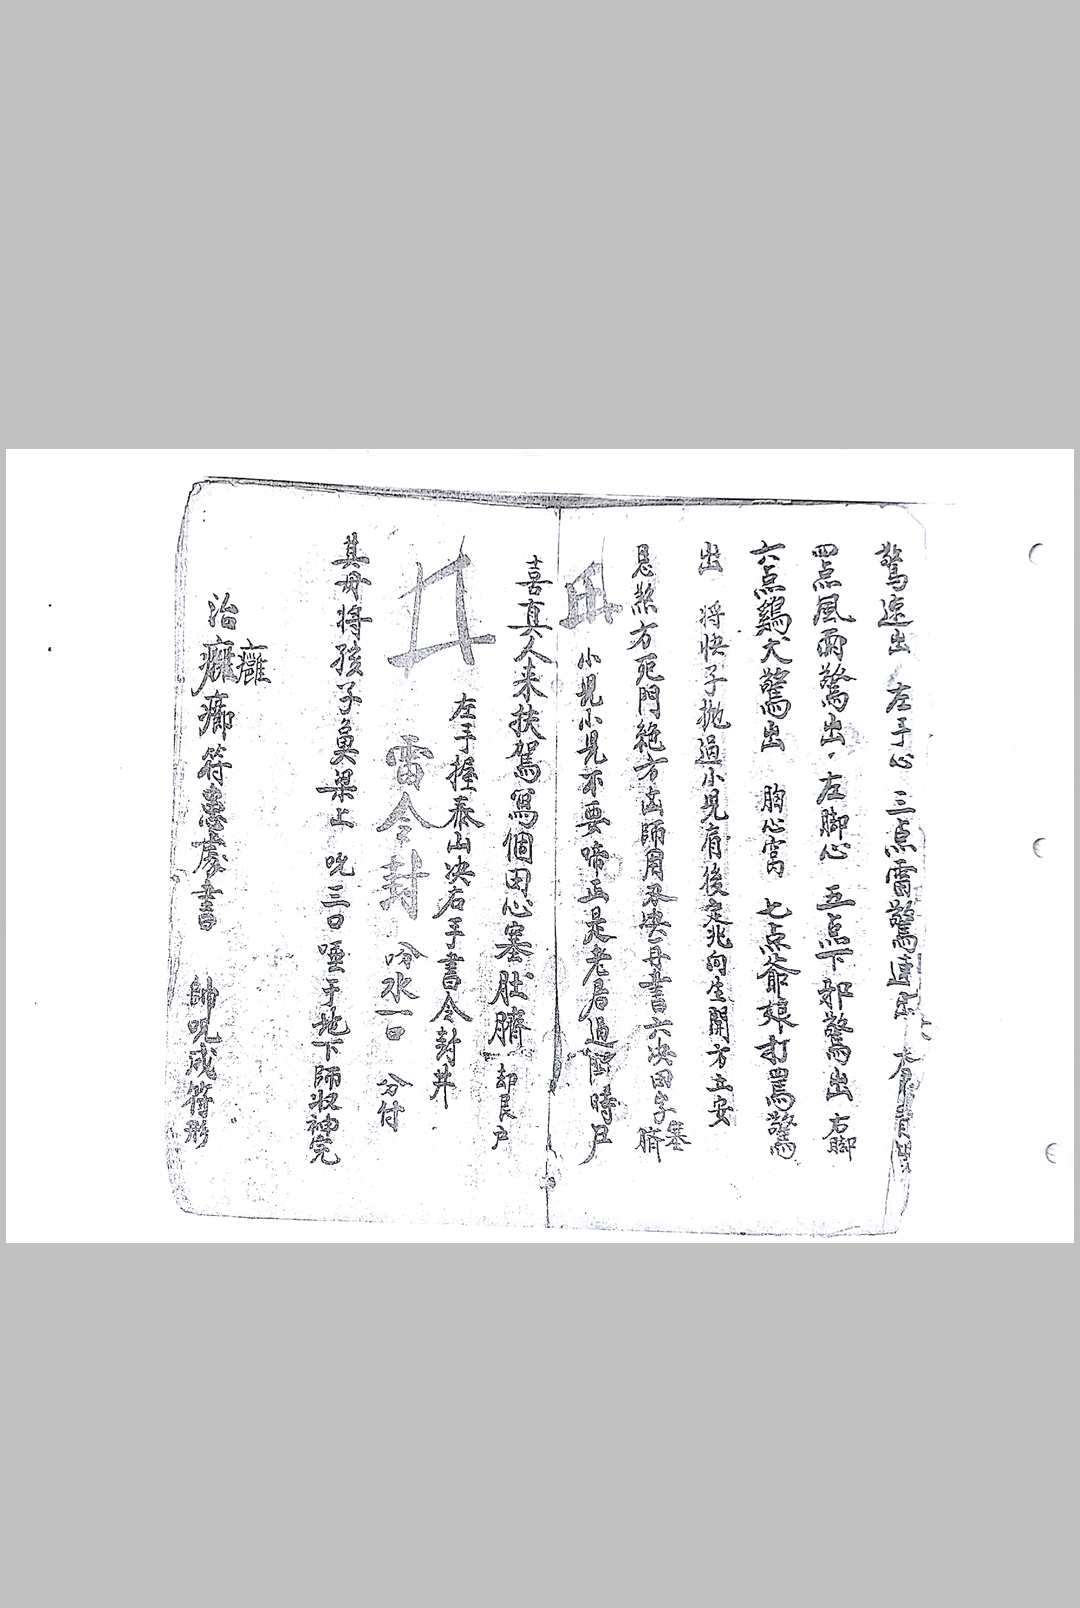 驚速出 左手心 三点雷驚速出
四点風雨驚出 左脚心 五点下邪驚出 右脚
六点鷄犬驚出 胸心窩 七点爺娘打罵驚
出 將快子抛過小兒肩後定北向生開方立安
忌煞方死門絶方凶師用 决一毋書六决田字塞臍
小兒小兒不要啼正是老君過 時尸
喜真人来扶駕寫個田心塞肚臍 却艮户
左手握泰山决右手書令封井
井 雷令封 吩水一口 分付
其母将孩子鼻梁上 吮三口唾于地下師收神完
治癰癤符患處書 帥呪成符形
癰